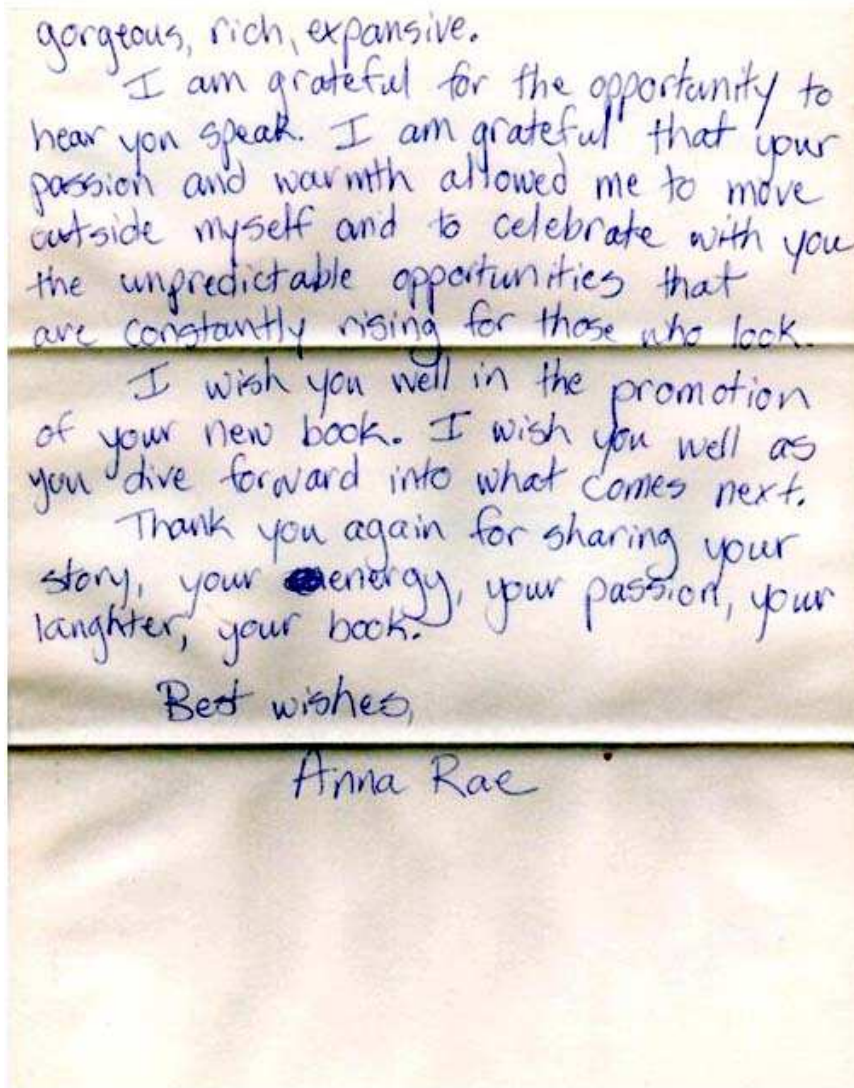 gorgeous, rich, expansive.
I am grateful for the opportunity to
hear you speak. I am grateful that your
passion and warmth allowed me to move
outside myself and to celebrate with you
the unpredictable opportunities that
are constantly rising for those who look.
I wish you well in the promotion
of your new book. I wish you well as
you dive forward into what comes next.
Thank you again for sharing your
story, your energy, your passion, your
laughter, your book.
Best wishes,
Anna Rae